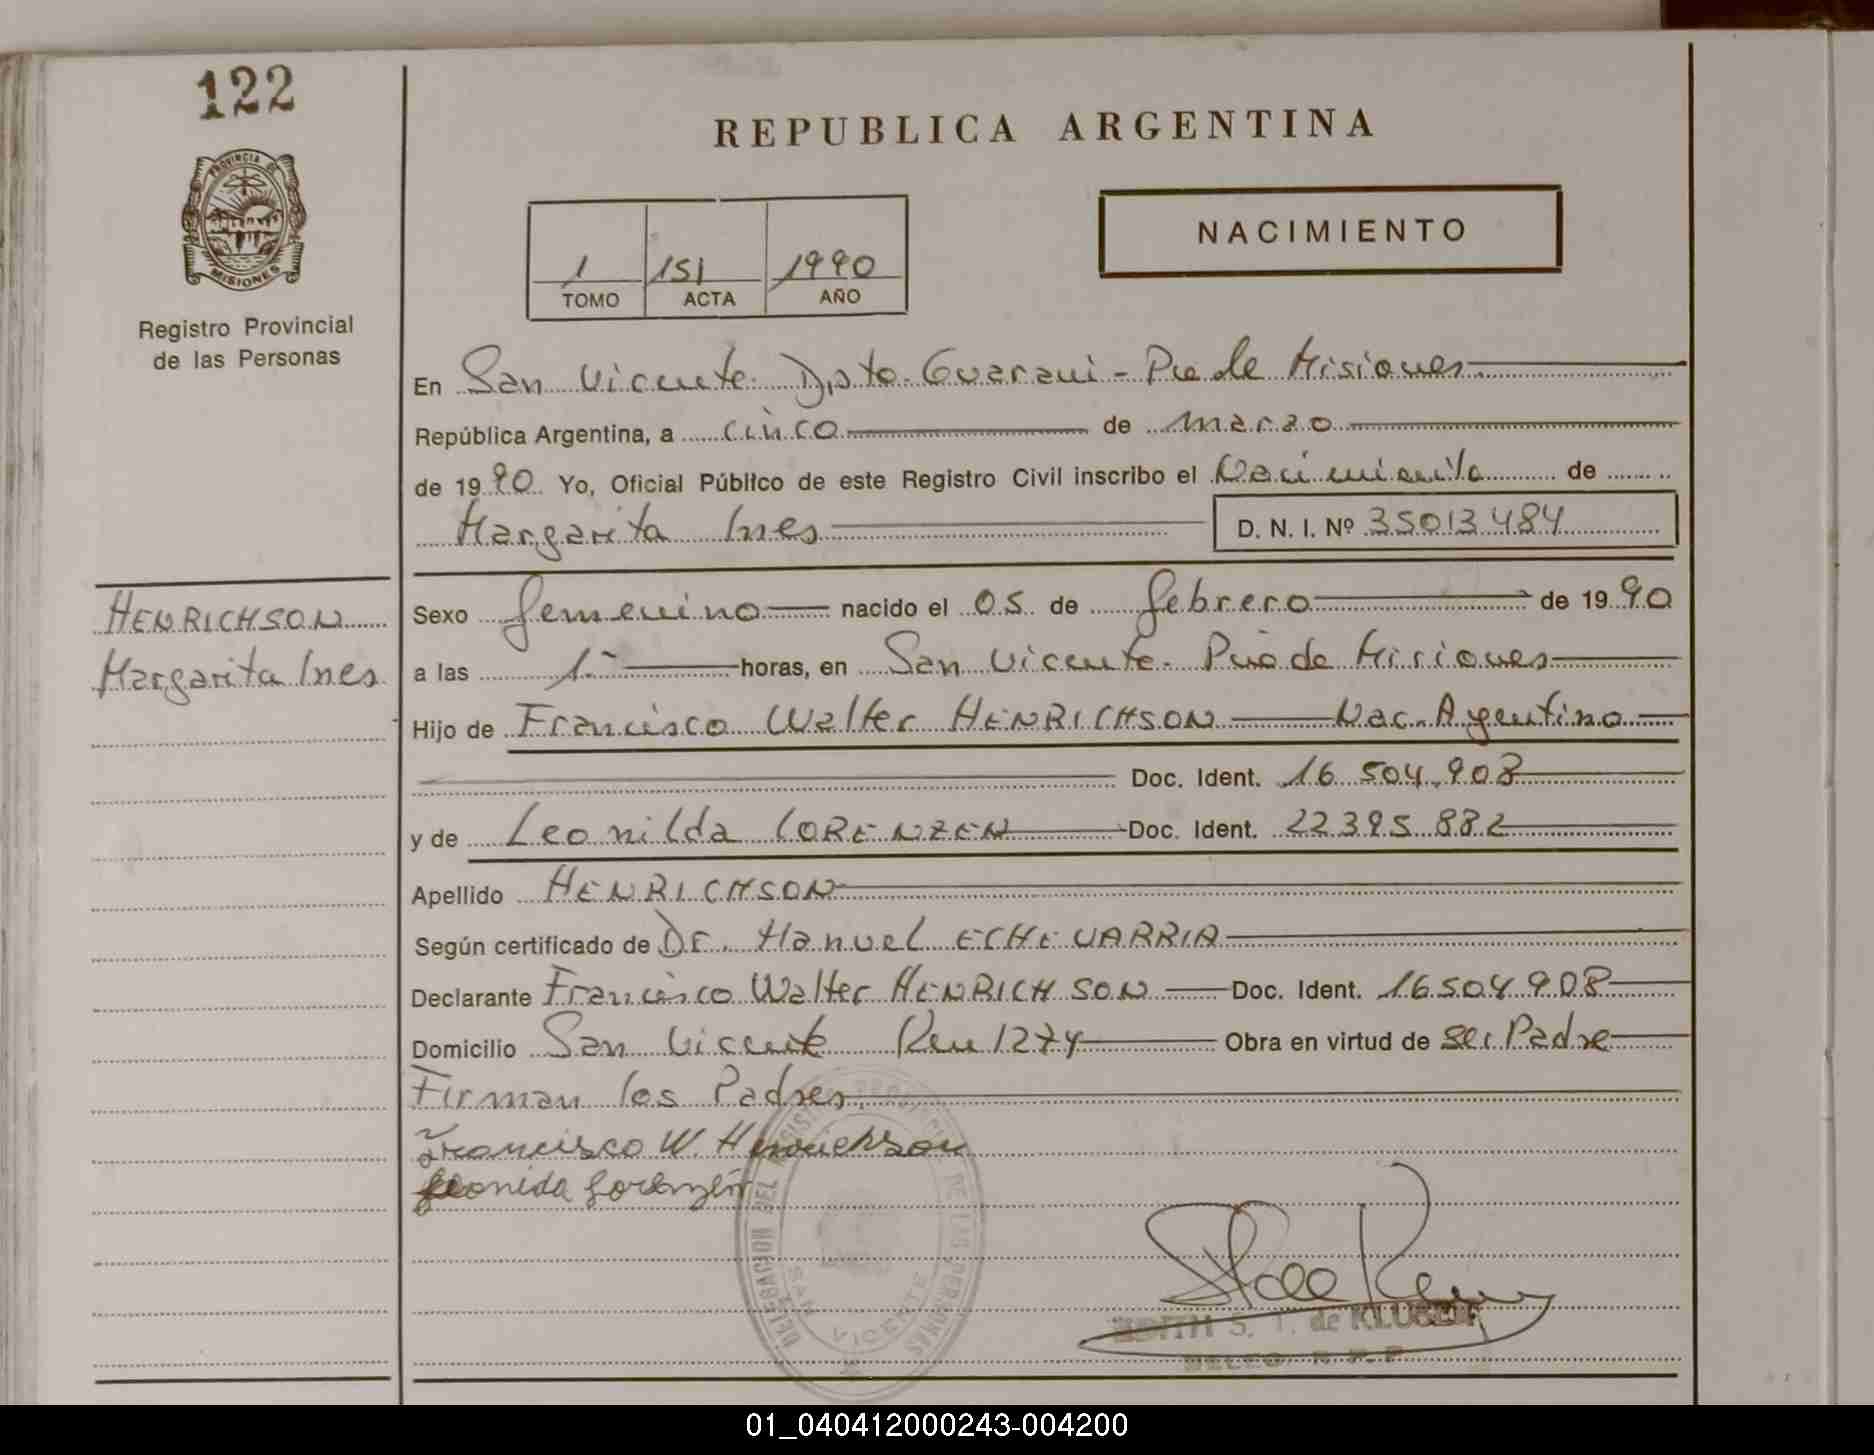 122
REPUBLICA ARGENTINA
PROVINCIA DE
MISIONES
Registro Provincial
de las Personas
NACIMIENTO
1 151 1990
TOMO ACTA AÑO
En San Vicente Dpto. Guarani - Pcia de Misiones
República Argentina, a cinco de marzo
de 1990 Yo, Oficial Público de este Registro Civil inscribo el Nacimiento de
Margarita Ines D. N. I. Nº 35013484
HENRICHSON
Margarita Ines
Sexo femenino nacido el 05 de febrero de 1990
a las 1.- horas, en San Vicente - Pcia de Misiones
Hijo de Francisco Walter HENRICHSON Nac. Argentino
Doc. Ident. 16.504.908
y de Leonilda LORENZEN Doc. Ident. 22395882
Apellido HENRICHSON
Según certificado de Dr. Manuel ECHEVARRIA
Declarante Francisco Walter HENRICHSON Doc. Ident. 16504908
Domicilio San Vicente Km 1274 Obra en virtud de ser Padre
Firman los Padres.
Francisco W. Henrichson
Leonida Lorenzén
DELEGACION DEL REGISTRO PROVINCIAL DE LAS PERSONAS
SAN VICENTE
EDITH S. T. de KLUSE
01_040412000243-004200